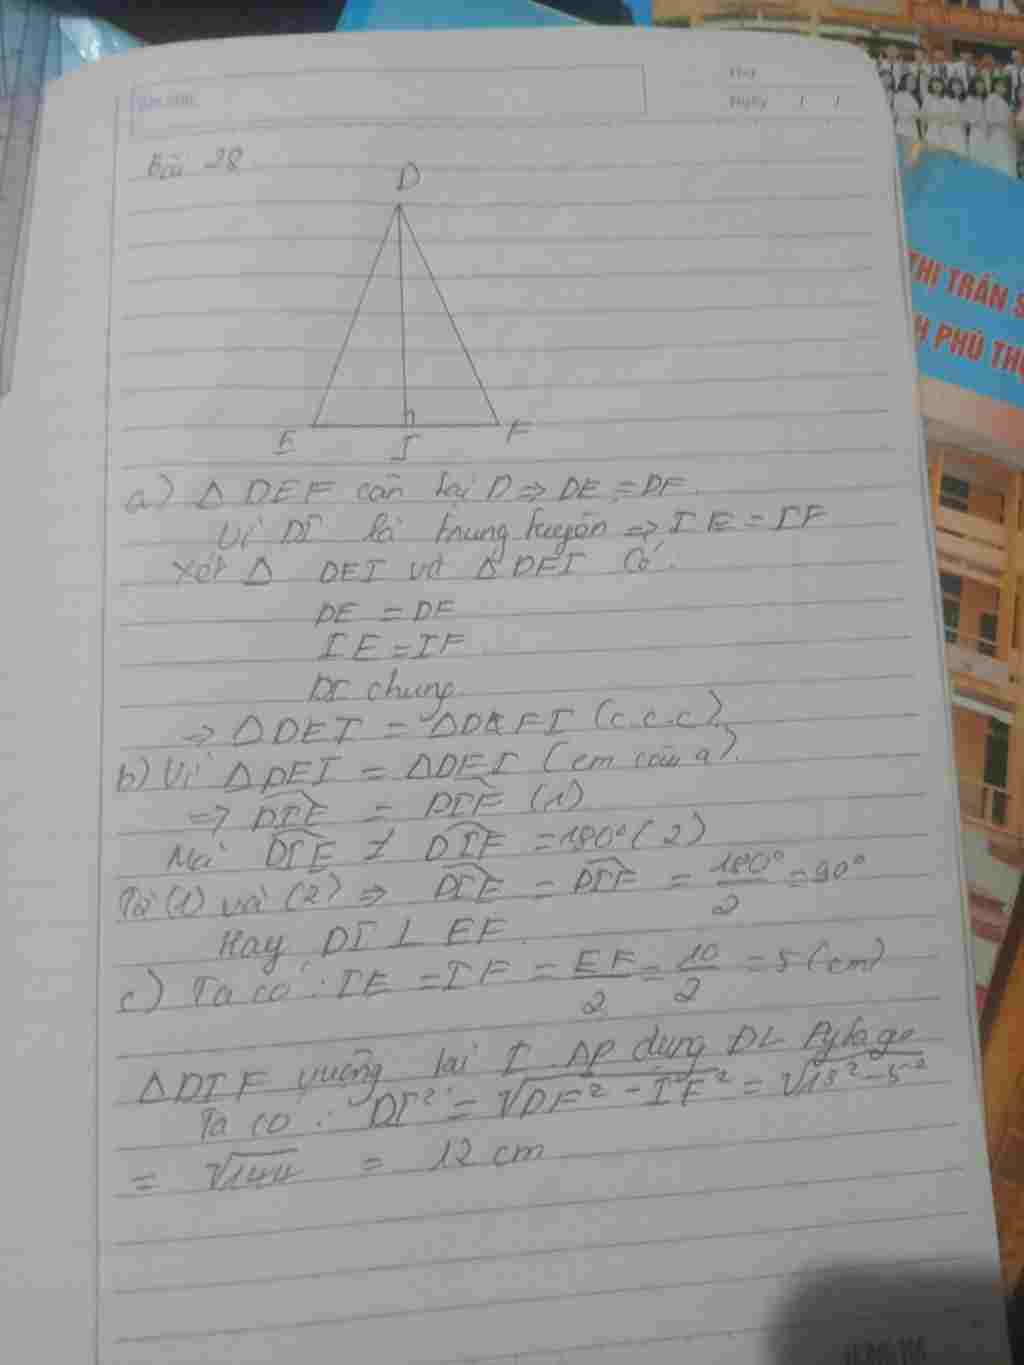 Thứ
Ngày / /
Bài 28
D
E
I
F
a) Δ DEF cân tại D ⇒ DE = DF.
Vì DI là trung tuyến ⇒ IE = IF
Xét Δ DEI và Δ DFI Có:
DE = DF
IE = IF
DI chung
⇒ ΔDEI = ΔDFI (c.c.c).
b) Vì ΔDEI = ΔDFI (cm câu a).
⇒ DIE = DIF (1)
Mà DIE + DIF = 180° (2)
Từ (1) và (2) ⇒ DIE = DIF = 180°/2 = 90°
Hay DI ⊥ EF.
c) Ta có: IE = IF = EF/2 = 10/2 = 5 (cm)
ΔDIF vuông tại I. AP dụng DL Pytago
Ta có: DI² = √DF² - IF² = √13² - 5²
= √144 = 12 cm
THỊ TRẤN S
H PHÚ THỌ